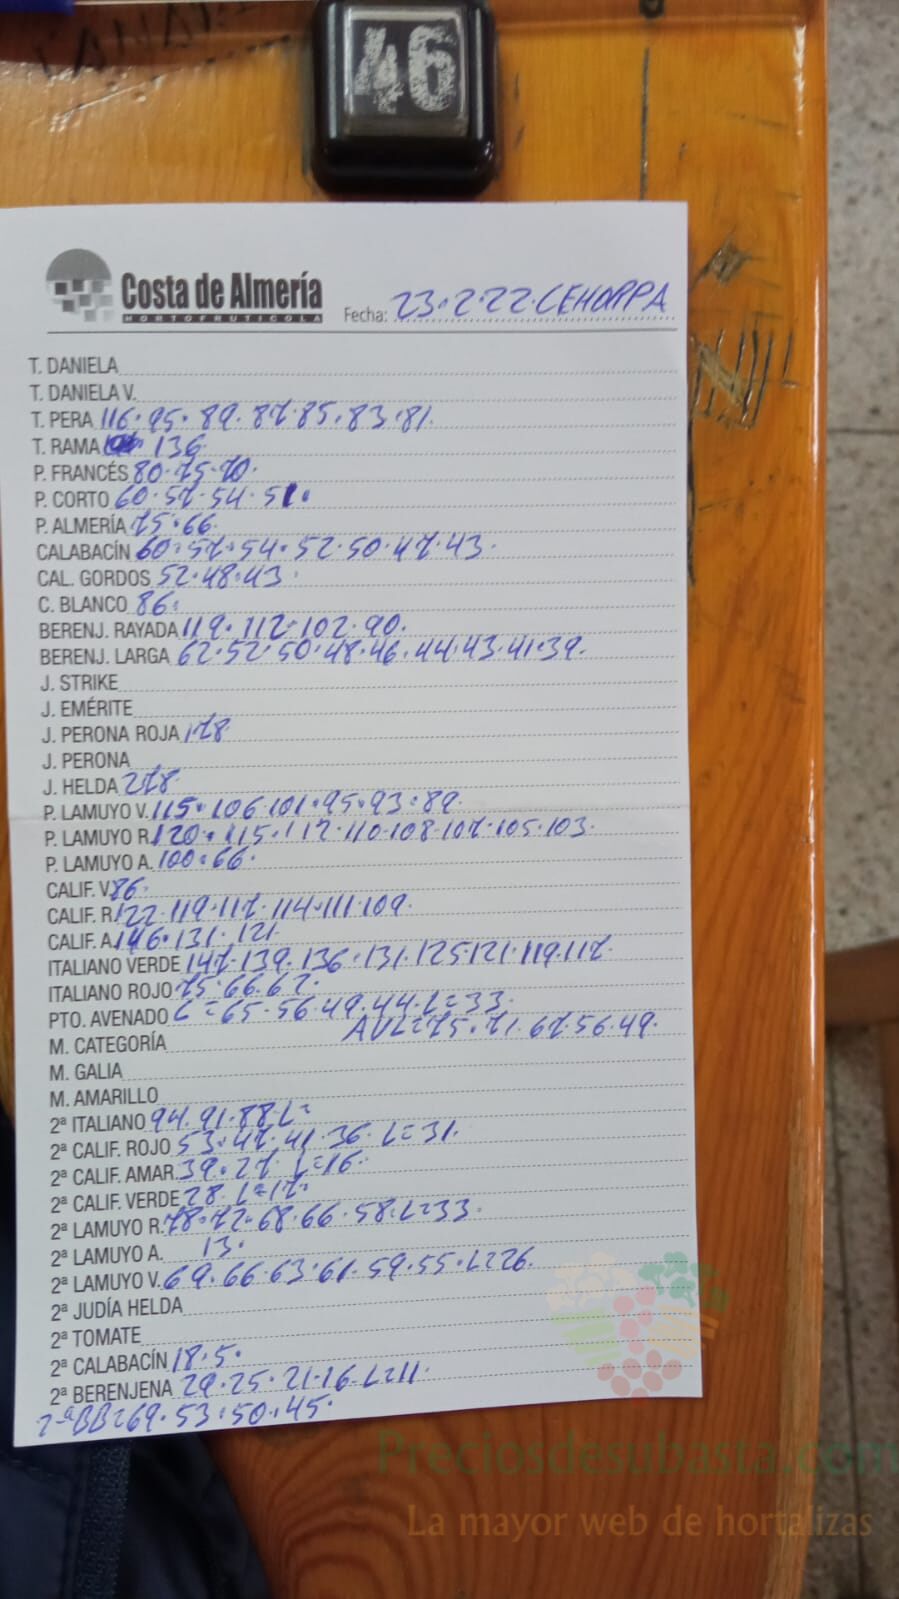 46
Costa de Almería
HORTOFRUTICOLA
Fecha: 23.2.22.CEHORPA
T. DANIELA
T. DANIELA V.
T. PERA 116.95.89.87.85.83.81.
T. RAMA 136
P. FRANCÉS 80.75.70.
P. CORTO 60.57.54.51.
P. ALMERÍA 75.66.
CALABACÍN 60.57.54.52.50.47.43.
CAL. GORDOS 52.48.43.
C. BLANCO 86.
BERENJ. RAYADA 119.112.102.90.
BERENJ. LARGA 62.52.50.48.46.44.43.41.39.
J. STRIKE
J. EMÉRITE
J. PERONA ROJA 178.
J. PERONA
J. HELDA 278.
P. LAMUYO V. 115.106.101.95.93.89.
P. LAMUYO R. 120.115.112.110.108.107.105.103.
P. LAMUYO A. 100.66.
CALIF. V. 86.
CALIF. R. 122.119.117.114.111.109.
CALIF. A. 146.131.121.
ITALIANO VERDE 147.139.136.131.125.121.119.117.
ITALIANO ROJO 75.66.62.
PTO. AVENADO C=65.56.49.44.L=33.
M. CATEGORÍA AVL=75.71.67.56.49.
M. GALIA
M. AMARILLO
2ª ITALIANO 94.91.88.L=
2ª CALIF. ROJO 53.47.41.36.L=31.
2ª CALIF. AMAR. 39.27.L=16.
2ª CALIF. VERDE 28.L=17.
2ª LAMUYO R. 78.72.68.66.58.L=33.
2ª LAMUYO A. 13.
2ª LAMUYO V. 69.66.63.61.59.55.L=26.
2ª JUDÍA HELDA
2ª TOMATE
2ª CALABACÍN 18.5.
2ª BERENJENA 29.25.21.16.L=11.
2ªBB=69.53.50.45.
Preciosdesubasta.com
La mayor web de hortalizas